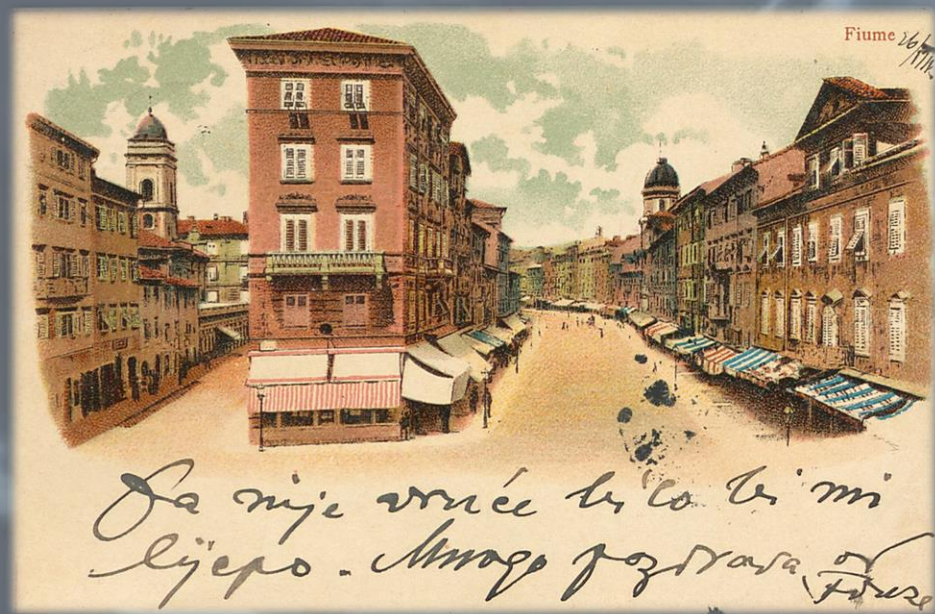 Fiume
Da nije vruće bi lo bi mi
lijepo. Mnogo pozdrava od